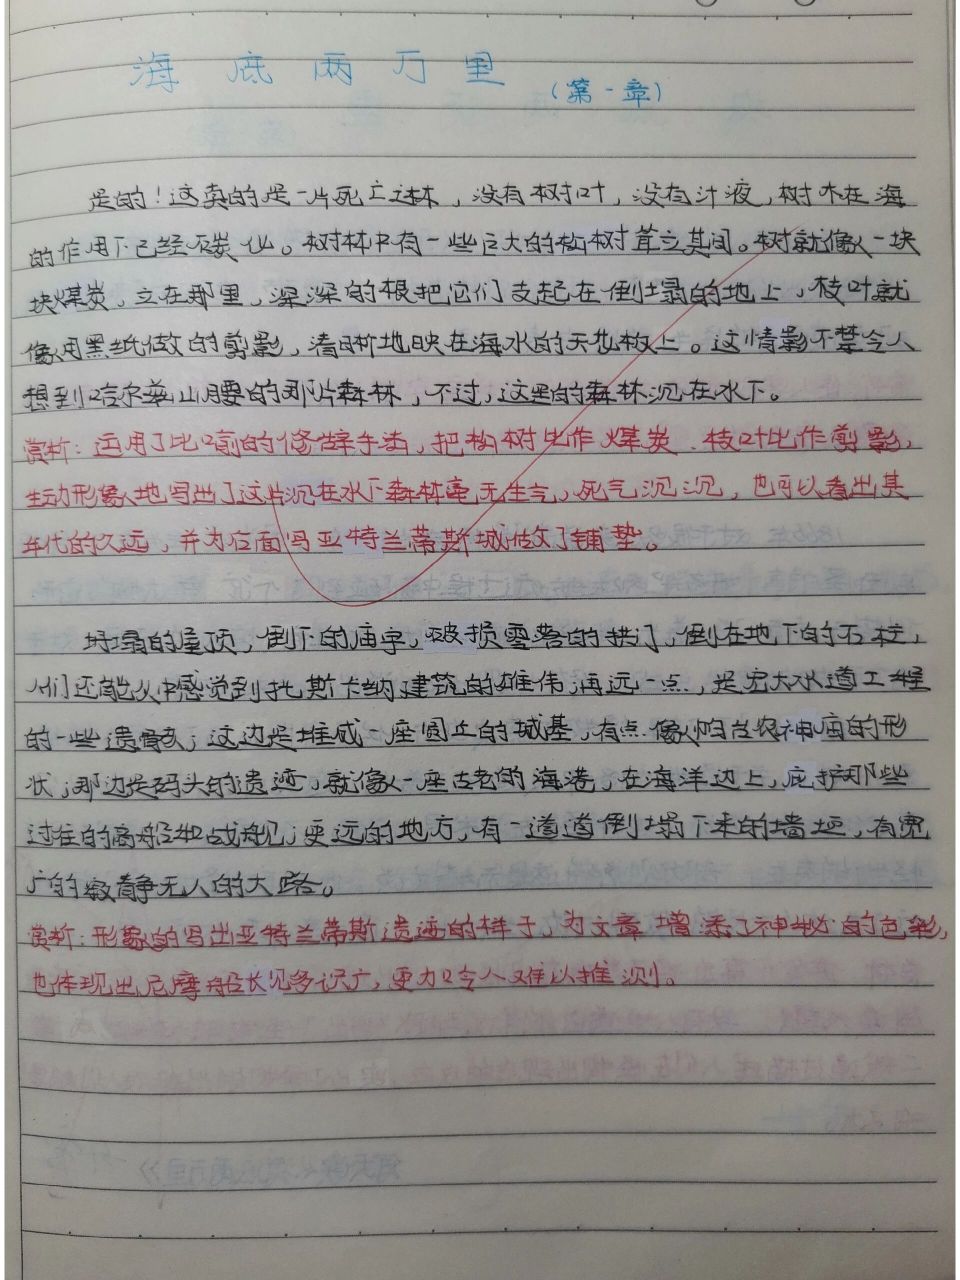 海底两万里
(第一章)
是的！这真的是一片死亡森林，没有树叶，没有汁液，树木在海
的作用下已经碳化。树林中有一些巨大的松树耸立其间。树就像一块
块煤炭，立在那里，深深的根把它们支起在倒塌的地上，枝叶就
像用黑纸做的剪影，清晰地映在海水的天花板上。这情影不禁令人
想到哈尔茨山腰的那片森林，不过，这里的森林沉在水下。
赏析：运用了比喻的修辞手法，把松树比作煤炭、枝叶比作剪影，
生动形象地写出了这片沉在水下森林毫无生气，死气沉沉，也可以看出其
年代的久远，并为后面写亚特兰蒂斯城做了铺垫。
坍塌的屋顶，倒下的庙宇，破损零落的拱门，倒在地下的石柱，
人们还能从中感觉到托斯卡纳建筑的雄伟；再远一点，是宏大水道工程
的一些遗骸；这边是堆成一座圆丘的城基，有点像帕台农神庙的形
状；那边是码头的遗迹，就像一座古老的海港，在海洋边上，庇护那些
过往的商船和战舰；更远的地方，有一道道倒塌下来的墙垣，有宽
广的寂静无人的大路。
赏析：形象的写出亚特兰蒂斯遗迹的样子，为文章增添了神秘的色彩，
也体现出尼摩船长见多识广，更加令人难以推测。